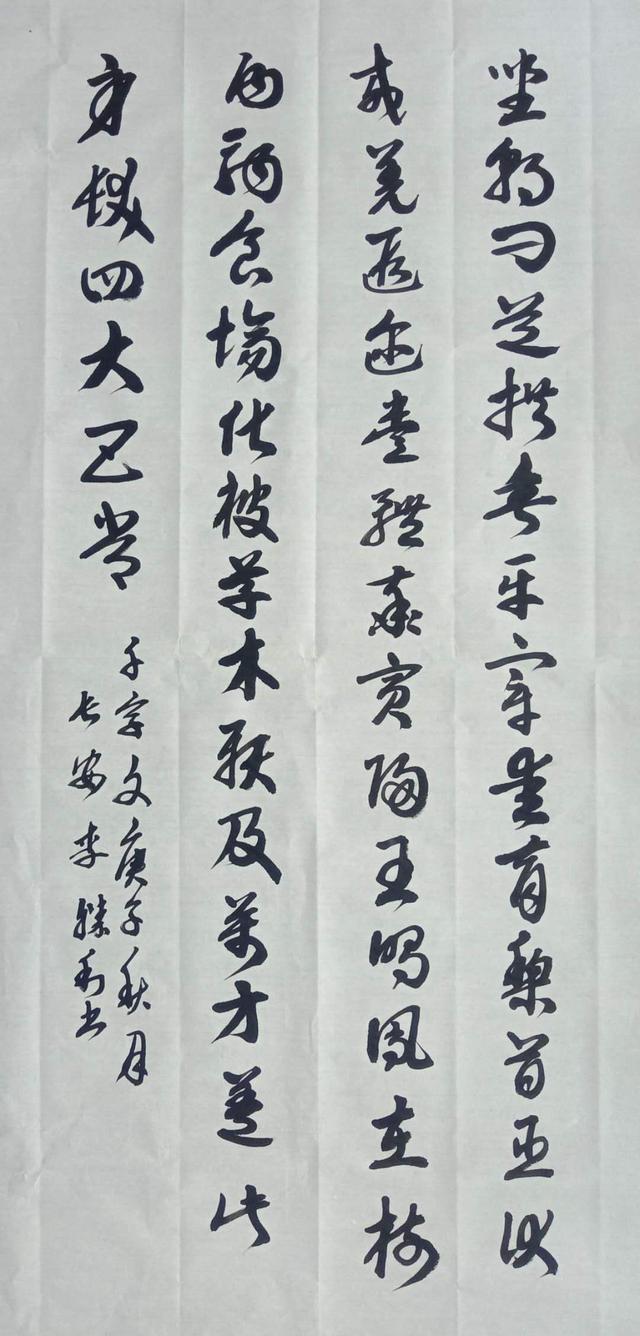 坐朝問道拱垂平章愛育黎首臣伏
戎羌遐邇壹體率賓歸王鳴鳳在樹
白駒食場化被草木賴及萬方蓋此
身髮四大五常
千字文庚子秋月
长安李勝利书